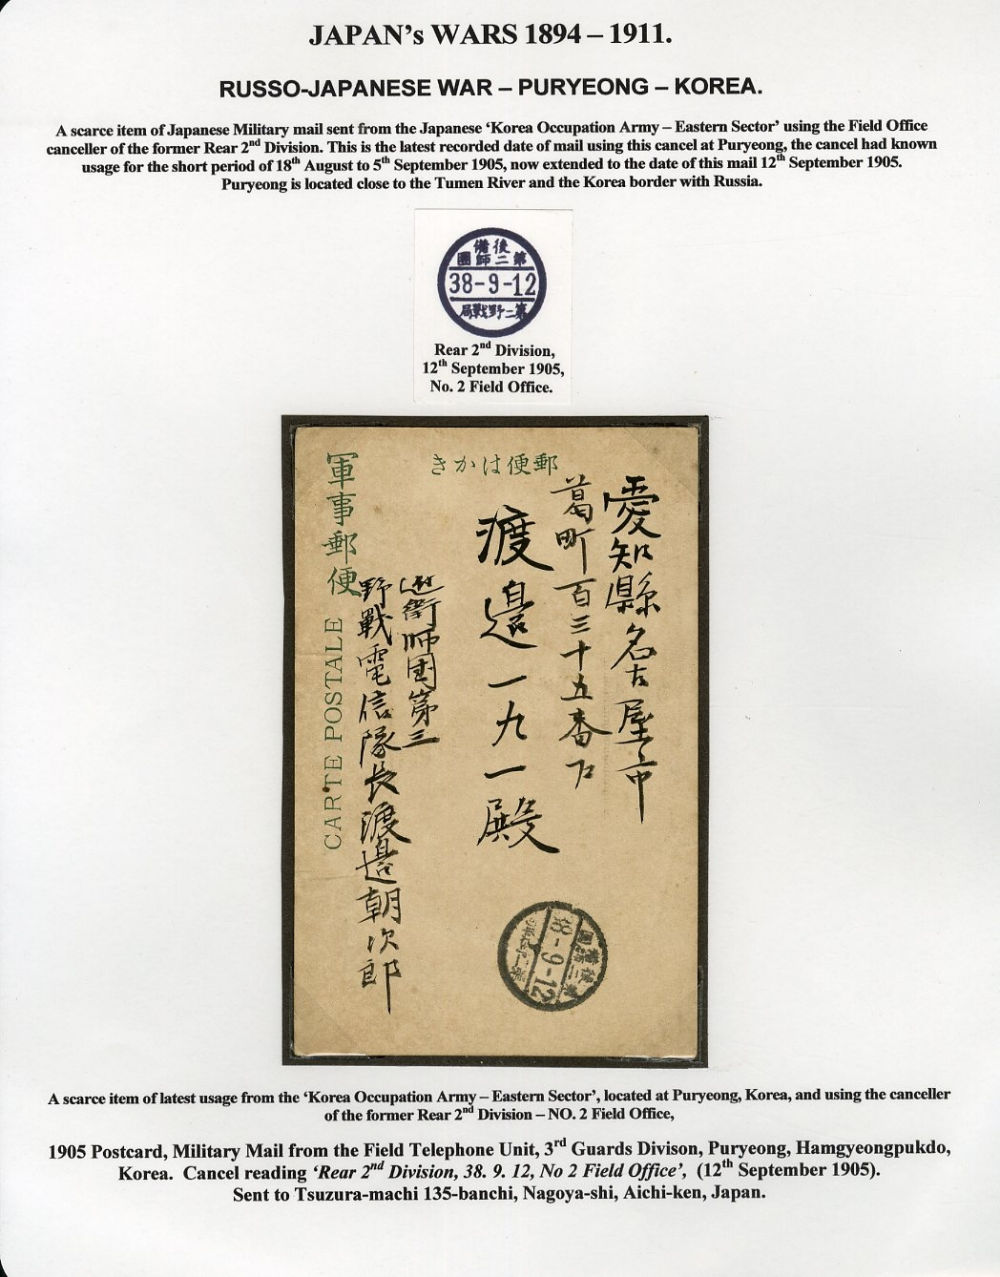 JAPAN's WARS 1894 – 1911.
RUSSO-JAPANESE WAR – PURYEONG – KOREA.
A scarce item of Japanese Military mail sent from the Japanese ‘Korea Occupation Army – Eastern Sector’ using the Field Office
canceller of the former Rear 2nd Division. This is the latest recorded date of mail using this cancel at Puryeong, the cancel had known
usage for the short period of 18th August to 5th September 1905, now extended to the date of this mail 12th September 1905.
Puryeong is located close to the Tumen River and the Korea border with Russia.
後備
第二師團
38-9-12
第二野戰局
Rear 2nd Division,
12th September 1905,
No. 2 Field Office.
郵便はかき
愛知縣名古屋市
葛町百三十五番戸
渡邉一九一殿
近衛師団第三
野戰電信隊長渡邉朝次郎
軍事郵便 CARTE POSTALE
38-9-12
A scarce item of latest usage from the ‘Korea Occupation Army – Eastern Sector’, located at Puryeong, Korea, and using the canceller
of the former Rear 2nd Division – NO. 2 Field Office,
1905 Postcard, Military Mail from the Field Telephone Unit, 3rd Guards Divison, Puryeong, Hamgyeongpukdo,
Korea. Cancel reading ‘Rear 2nd Division, 38. 9. 12, No 2 Field Office’, (12th September 1905).
Sent to Tsuzura-machi 135-banchi, Nagoya-shi, Aichi-ken, Japan.